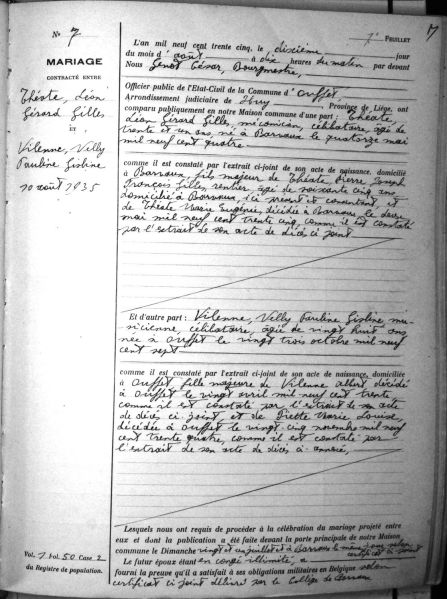 No 7
7e FEUILLET
17
MARIAGE
CONTRACTÉ ENTRE
Théâte, Léon
Gérard Gilles
ET
Vilenne, Velly
Pauline Gisline
10 août 1935
L'an mil neuf cent trente cinq, le dixième jour
du mois d'août à dix heures du matin par devant
Nous Genot César, Bourgmestre,
Officier public de l'Etat-Civil de la Commune d'Ouffet
Arrondissement judiciaire de Huy, Province de Liége, ont
comparu publiquement en notre Maison commune d'une part : Théâte,
Léon Gérard Gilles, mécanicien, célibataire, âgé de
trente et un ans, né à Barvaux le quatorze mai
mil neuf cent quatre
comme il est constaté par l'extrait ci-joint de son acte de naissance, domicilié
à Barvaux, fils majeur de Théâte, Pierre Joseph
François Gilles, rentier, âgé de soixante cinq ans
domicilié à Barvaux, ici présent et consentant, et
de Théate Marie Eugénie, décédée à Barvaux le deux
mai mil neuf cent trente cinq, comme il est constaté
par l'extrait de son acte de décès ci joint
Et d'autre part : Vilenne, Velly Pauline Gisline,
célibataire, âgée de vingt huit ans
née à Ouffet le vingt trois octobre mil neuf
cent sept
comme il est constaté par l'extrait ci-joint de son acte de naissance, domiciliée
à Ouffet fille majeure de Vilenne Albert décédé
à Ouffet le vingt avril mil neuf cent trente
comme il est constaté par l'extrait de son acte
de décès ci joint, et de Piette Marie Louise
décédée à Ouffet le vingt cinq novembre mil neuf
cent trente quatre, comme il est constaté par
l'extrait de son acte de décès ci annexé,
Lesquels nous ont requis de procéder à la célébration du mariage projeté entre
eux et dont la publication a été faite devant la porte principale de notre Maison
commune le Dimanche vingt et un juillet et à Barvaux le même jour selon
certificat ci joint
Le futur époux étant en congé illimité, a
fourni la preuve qu'il a satisfait à ses obligations militaires en Belgique selon
certificat ci joint délivré par le Collège de Barvaux
Vol. 7 Fol. 50 Case 2
du Registre de population.